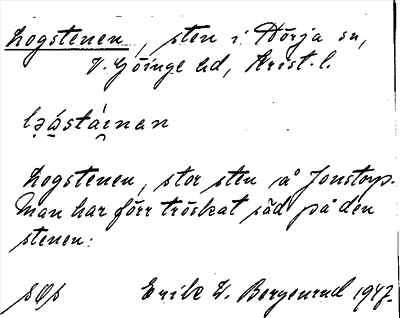 Logstenen, sten i Hörja sn,
V. Göinge hd, Krist. l.
lǫǻstáinan
Logstenen, stor sten å Jonstorp.
Man har förr tröskat säd på den
stenen.
Erik W. Bergenrud 1947